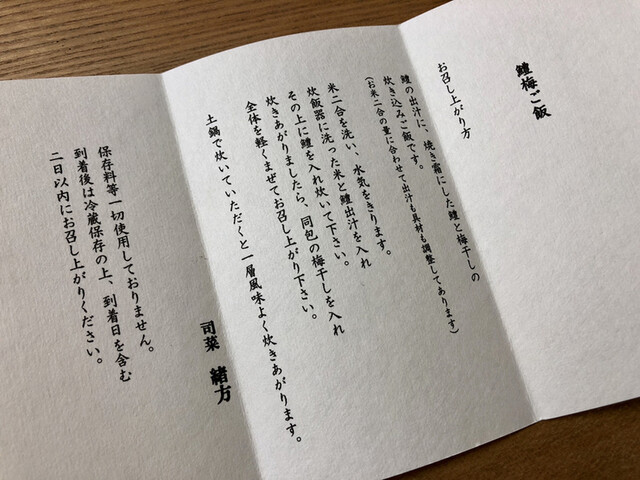 鱧梅ご飯
お召し上がり方
鱧の出汁に、焼き霜にした鱧と梅干しの
炊き込みご飯です。
(お米二合の量に合わせて出汁も具材も調整してあります)
米二合を洗い、水気をきります。
炊飯器に洗った米と鱧出汁を入れ
その上に鱧を入れ炊いて下さい。
炊きあがりましたら、同包の梅干しを入れ
全体を軽くまぜてお召し上がり下さい。
土鍋で炊いていただくと一層風味よく炊きあがります。
司菜 緒方
保存料等一切使用しておりません。
到着後は冷蔵保存の上、到着日を含む
二日以内にお召し上がりください。